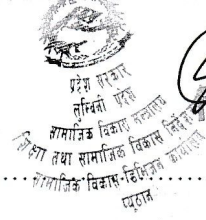 प्रदेश सरकार
लुम्बिनी प्रदेश
सामाजिक विकास मन्त्रालय
शिक्षा तथा सामाजिक विकास निर्देशनालय
सामाजिक विकास डिभिजन कार्यालय
प्यूठान